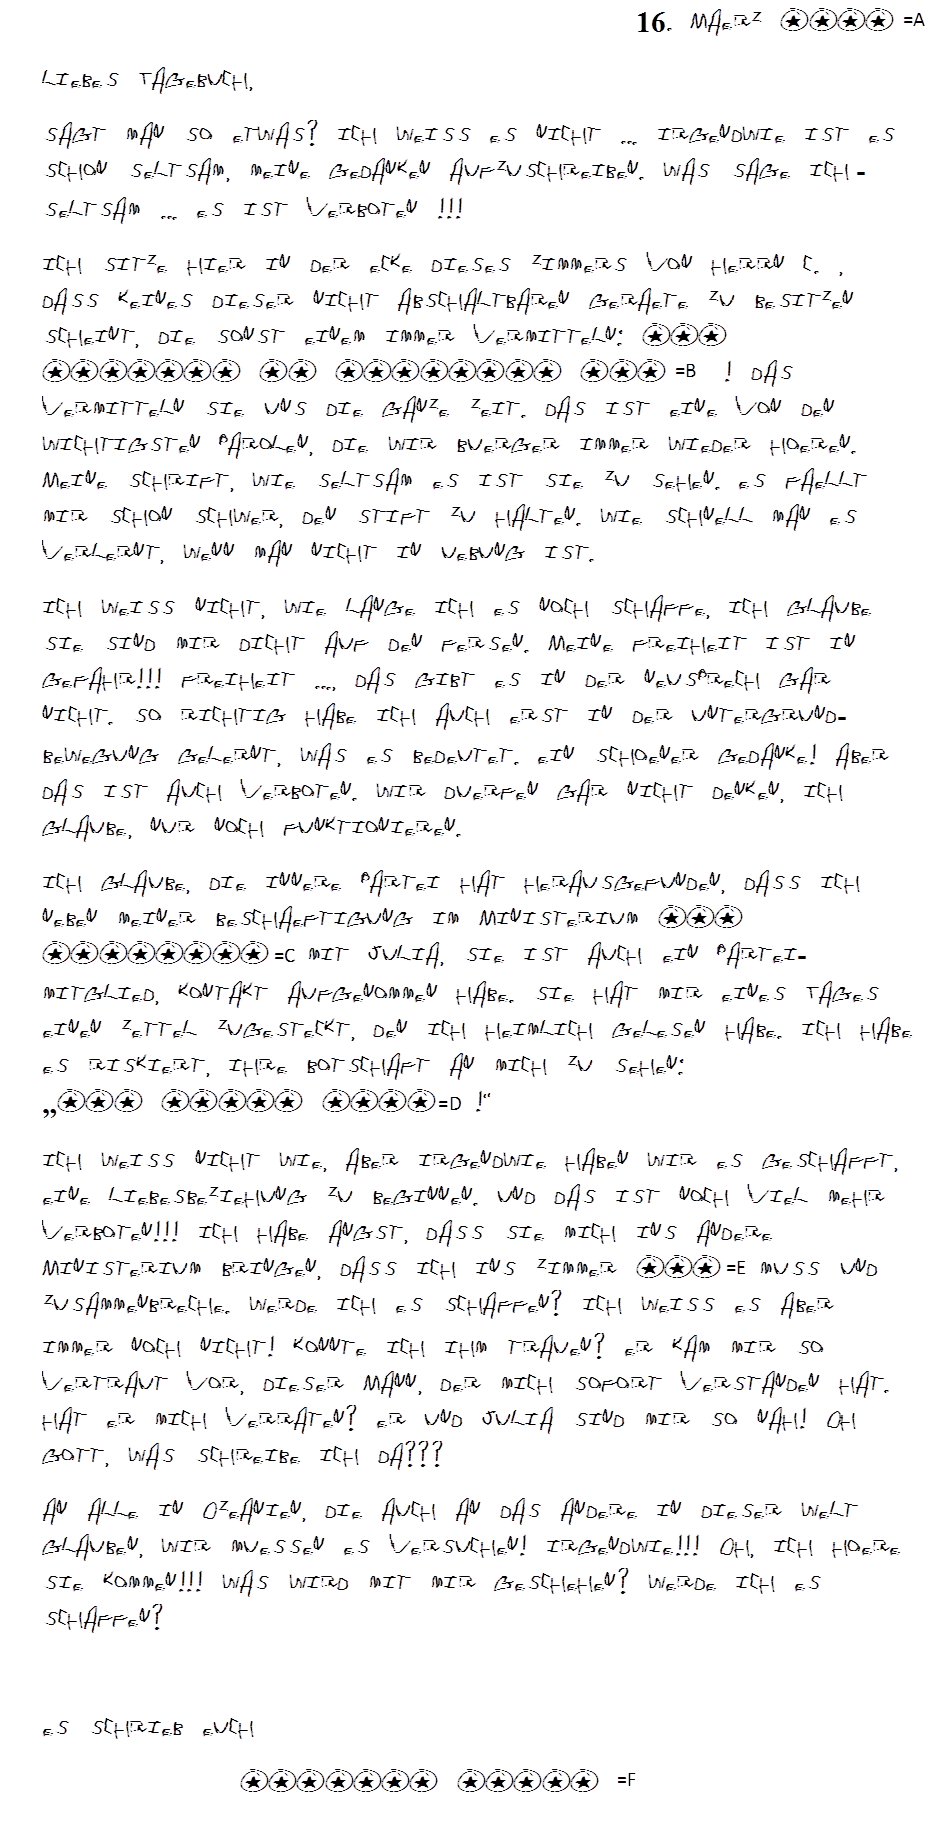 16. MAERZ ✪✪✪✪ =A
LIEBES TAGEBUCH,
SAGT MAN SO ETWAS? ICH WEISS ES NICHT ... IRGENDWIE IST ES
SCHON SELTSAM, MEINE GEDANKEN AUFZUSCHREIBEN. WAS SAGE ICH -
SELTSAM ... ES IST VERBOTEN !!!
ICH SITZE HIER IN DER ECKE DIESES ZIMMERS VON HERRN C. ,
DASS KEINES DIESER NICHT ABSCHALTBAREN GERAETE ZU BESITZEN
SCHEINT, DIE SONST EINEM IMMER VERMITTELN: ✪✪✪
✪✪✪✪✪✪✪ ✪✪ ✪✪✪✪✪✪✪✪ ✪✪✪ =B ! DAS
VERMITTELN SIE UNS DIE GANZE ZEIT. DAS IST EINE VON DEN
WICHTIGSTEN PAROLEN, DIE WIR BUERGER IMMER WIEDER HOEREN.
MEINE SCHRIFT, WIE SELTSAM ES IST SIE ZU SEHEN. ES FAELLT
MIR SCHON SCHWER, DEN STIFT ZU HALTEN. WIE SCHNELL MAN ES
VERLERNT, WENN MAN NICHT IN UEBUNG IST.
ICH WEISS NICHT, WIE LANGE ICH ES NOCH SCHAFFE, ICH GLAUBE
SIE SIND MIR DICHT AUF DEN FERSEN. MEINE FREIHEIT IST IN
GEFAHR!!! FREIHEIT ..., DAS GIBT ES IN DER NEUSPRECH GAR
NICHT. SO RICHTIG HABE ICH AUCH ERST IN DER UNTERGRUND-
BEWEGUNG GELERNT, WAS ES BEDEUTET. EIN SCHOENER GEDANKE! ABER
DAS IST AUCH VERBOTEN. WIR DUERFEN GAR NICHT DENKEN, ICH
GLAUBE, NUR NOCH FUNKTIONIEREN.
ICH GLAUBE, DIE INNERE PARTEI HAT HERAUSGEFUNDEN, DASS ICH
NEBEN MEINER BESCHAEFTIGUNG IM MINISTERIUM ✪✪✪
✪✪✪✪✪✪✪✪ =C MIT JULIA, SIE IST AUCH EIN PARTEI-
MITGLIED, KONTAKT AUFGENOMMEN HABE. SIE HAT MIR EINES TAGES
EINEN ZETTEL ZUGESTECKT, DEN ICH HEIMLICH GELESEN HABE. ICH HABE
ES RISKIERT, IHRE BOTSCHAFT AN MICH ZU SEHEN:
„✪✪✪ ✪✪✪✪✪ ✪✪✪✪=D !“
ICH WEISS NICHT WIE, ABER IRGENDWIE HABEN WIR ES GESCHAFFT,
EINE LIEBESBEZIEHUNG ZU BEGINNEN. UND DAS IST NOCH VIEL MEHR
VERBOTEN!!! ICH HABE ANGST, DASS SIE MICH INS ANDERE
MINISTERIUM BRINGEN, DASS ICH INS ZIMMER ✪✪✪ =E MUSS UND
ZUSAMMENBRECHE. WERDE ICH ES SCHAFFEN? ICH WEISS ES ABER
IMMER NOCH NICHT! KONNTE ICH IHM TRAUEN? ER KAM MIR SO
VERTRAUT VOR, DIESER MANN, DER MICH SOFORT VERSTANDEN HAT.
HAT ER MICH VERRATEN? ER UND JULIA SIND MIR SO NAH! OH
GOTT, WAS SCHREIBE ICH DA???
AN ALLE IN OZEANIEN, DIE AUCH AN DAS ANDERE IN DIESER WELT
GLAUBEN, WIR MUESSEN ES VERSUCHEN! IRGENDWIE!!! OH, ICH HOERE
SIE KOMMEN!!! WAS WIRD MIT MIR GESCHEHEN? WERDE ICH ES
SCHAFFEN?
ES SCHRIEB EUCH
✪✪✪✪✪✪✪ ✪✪✪✪✪ =F